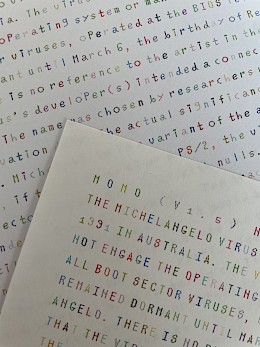 ia. The virus
operating system or ma
r viruses, operated at the BIOS
ant until March 6, the birthday of Re
is no reference to the artist in th
s's developer(s) intended a connec
The name was chosen by researchers
the actual significanc
variant of the
PS/2, the v
nulls.
uation
Mich
if t
MOMO (V1.5)
THE MICHELANGELO VIRUS
1991 IN AUSTRALIA. THE V
NOT ENGAGE THE OPERATING
ALL BOOT SECTOR VIRUSES,
REMAINED DORMANT UNTIL MAR
ANGELO. THERE IS NO
THAT THE VI
THE